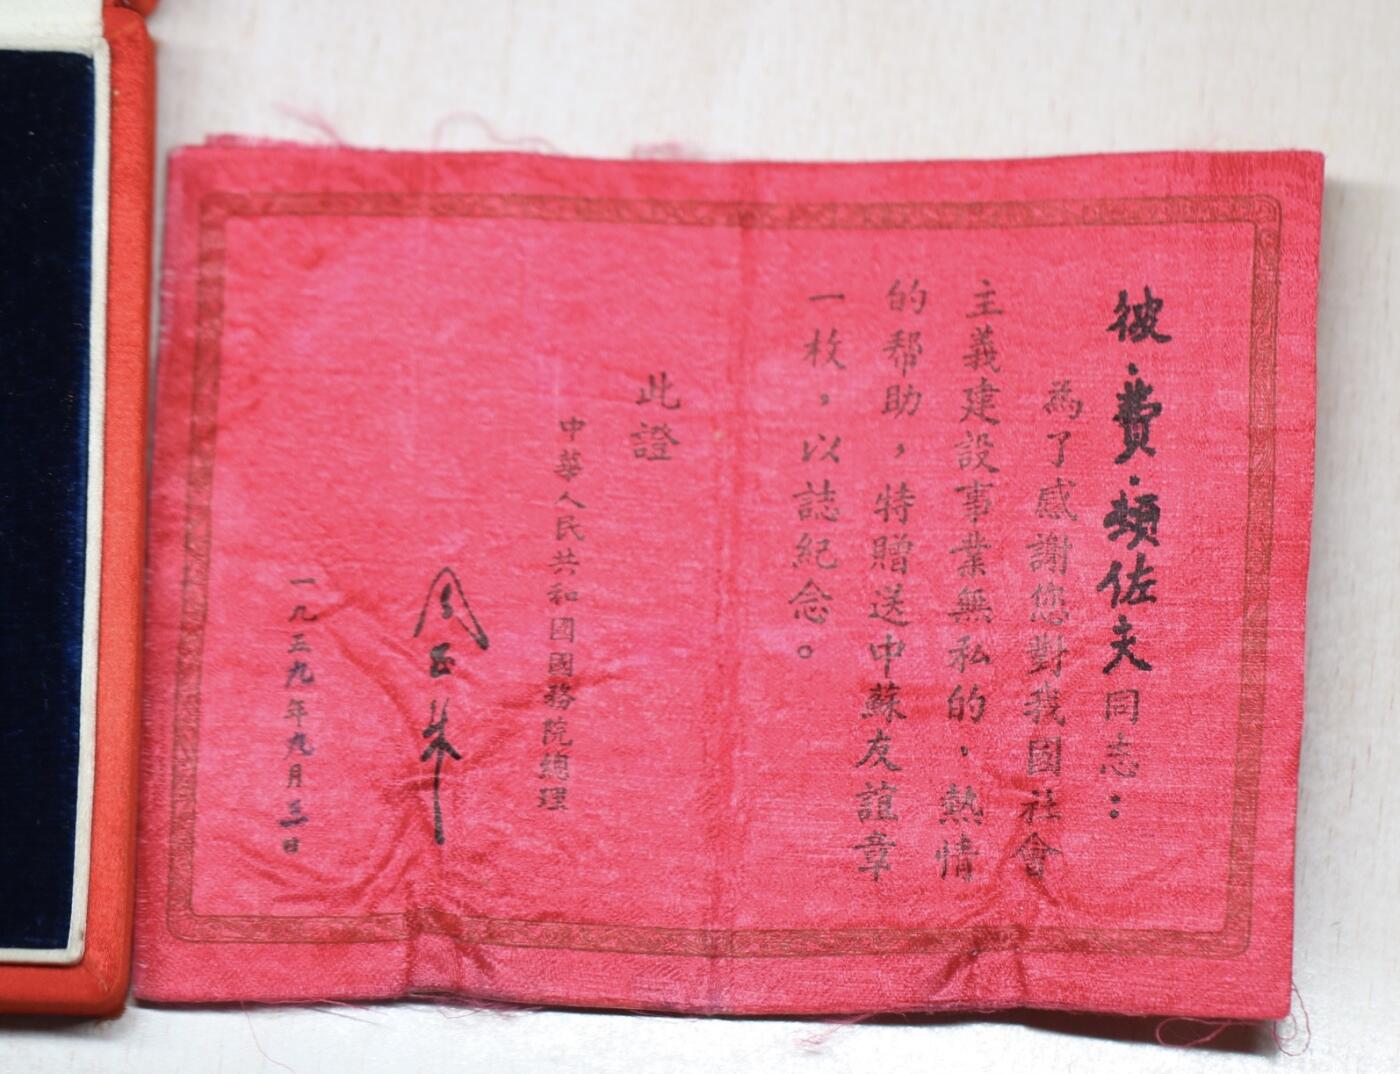 彼·費·頓佐夫同志：
為了感謝您對我國社會
主義建設事業無私的，熱情
的帮助，特贈送中蘇友誼章
一枚，以誌紀念。
此證
中華人民共和國國務院總理
周恩來
一九五九年九月三日